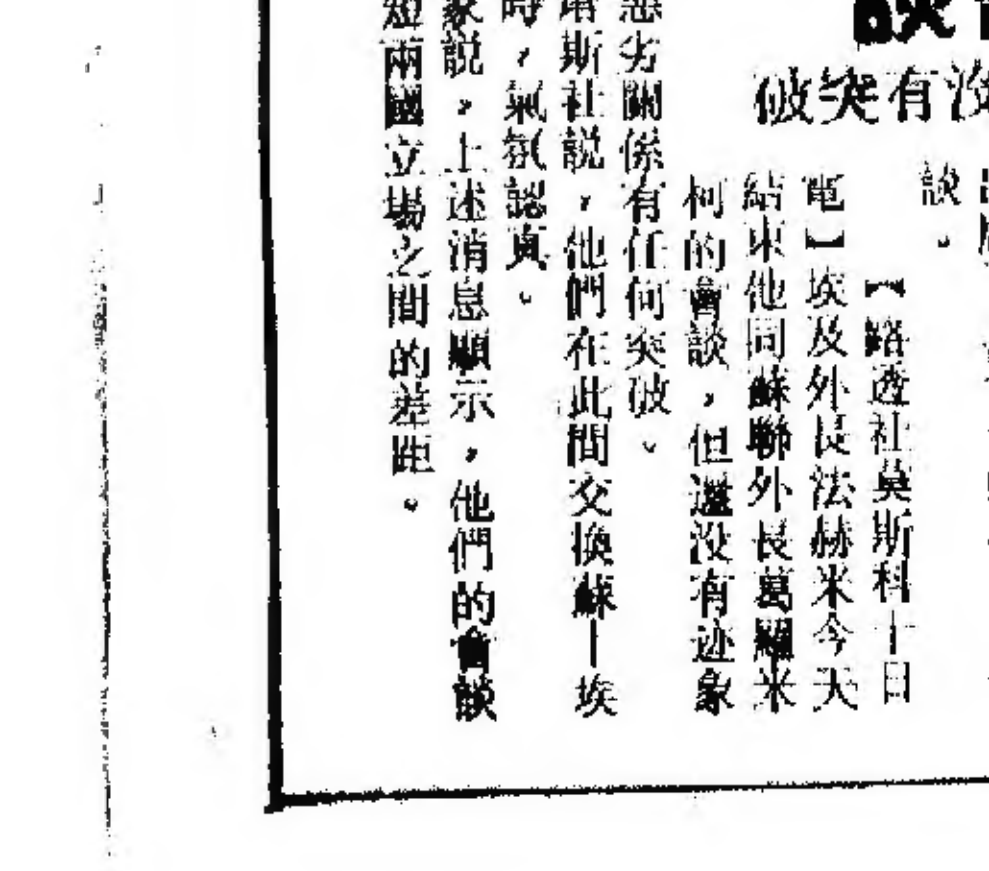 談
没有突破
談。
【路透社莫斯科十日
電】埃及外長法赫米今天
結束他同蘇聯外長葛羅米
柯的會談,但還没有迹象
惡劣關係有任何突破。
塔斯社説,他們在此間交換蘇—埃
時,氣氛認真。
家説,上述消息顯示,他們的會談
短兩國立場之間的差距。